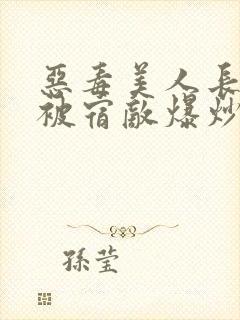 惡毒美人長
被宿敵爆炒
孫瑩